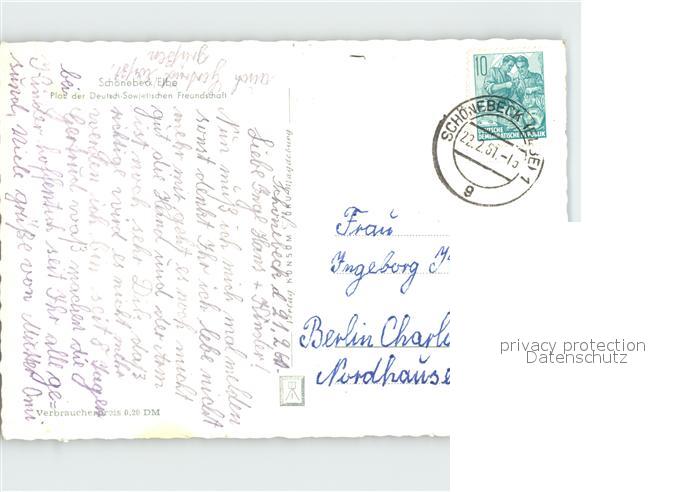 Schönebeck/Elbe
Platz der Deutsch-Sowjetischen Freundschaft
Schönebeck d 21.2.61.
Liebe Inge Hans + Kinder!
Nun muß ich mich mal melden
sonst denkt Ihr ich lebe nicht
mehr mir geht es noch nicht
gut die Hand und der Arm
ist noch sehr Dick daß
richtige wird es nicht mehr
werden ich bin seit 8 Tagen
bei Gertrud waß machen die
Kinder hoffentlich seit Ihr alle ge=
sund, viele grüße von Mutter Omi
auch Gertrud
grüßen
Verbraucherpreis 0,20 DM
KONSUM
Magdeburg
10
DEUTSCHE
DEMOKRATISCHE REPUBLIK
SCHÖNEBECK (ELBE) 1
22.2.61.
g
Frau
Ingeborg
Berlin Charlo
Nordhause
privacy protection
Datenschutz